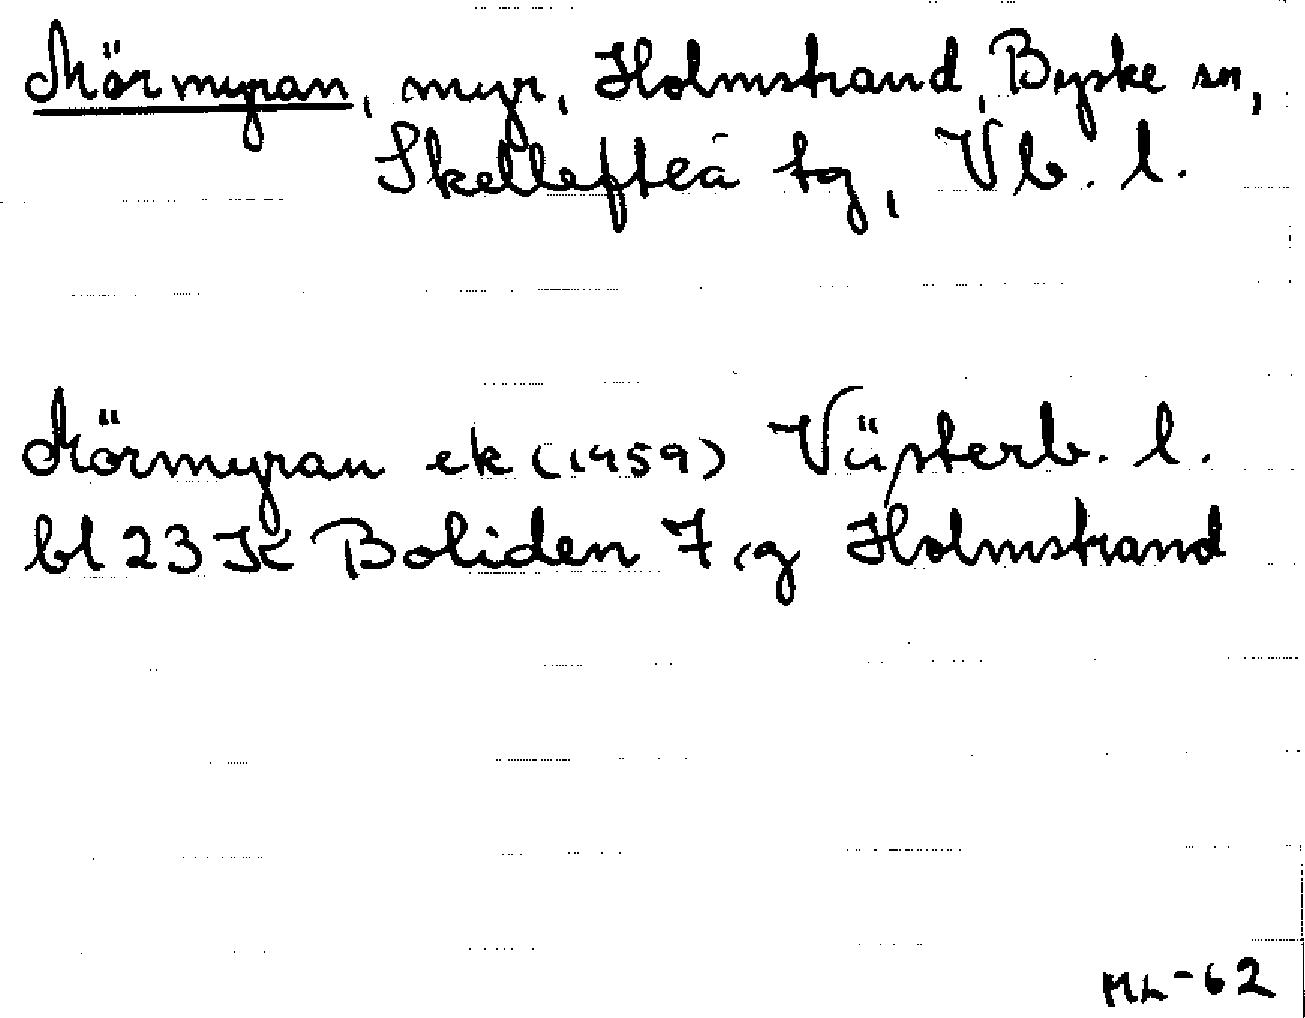 Mörmyran, myr, Holmstrand, Byske sn,
Skellefteå tg, Vb. l.
Mörmyran ek (1959) Västerb. l.
bl 23 K Boliden 7, g Holmstrand
ML-62